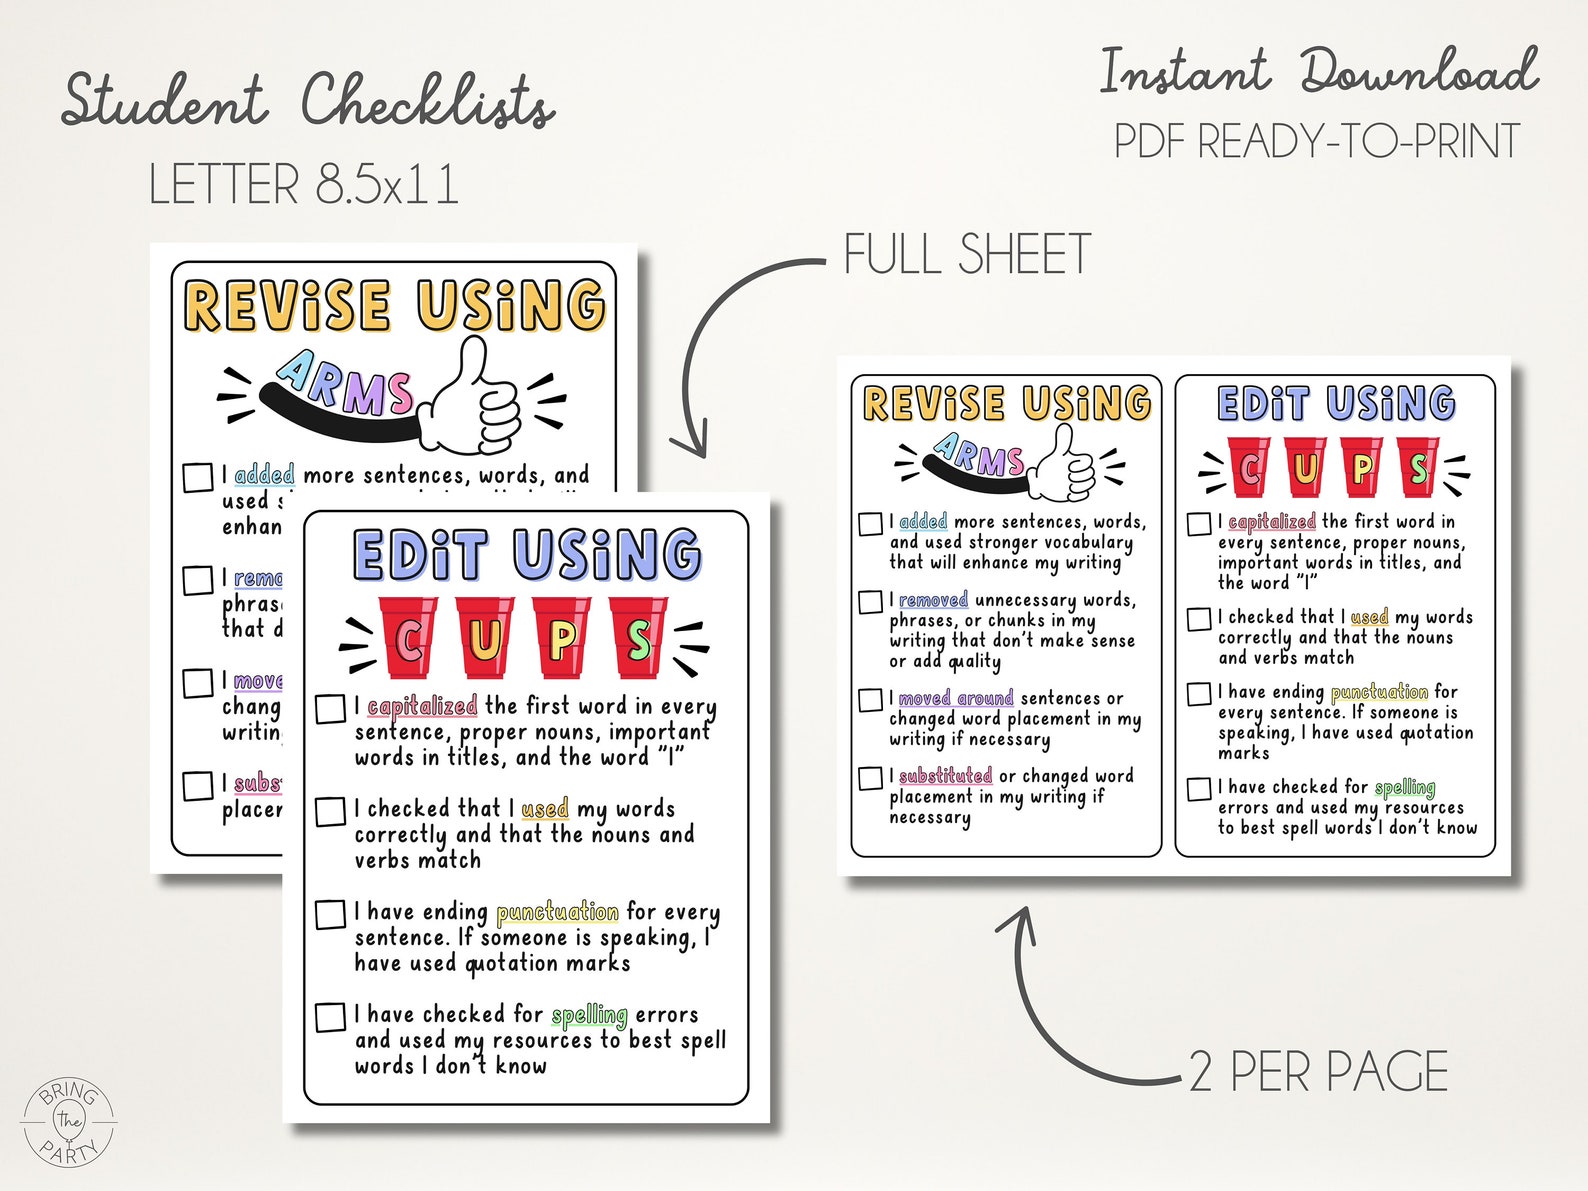 Student Checklists
LETTER 8.5x11
Instant Download
PDF READY-TO-PRINT
FULL SHEET
REViSE USiNG
ARMS
I added more sentences, words, and
used
enhan
I remo
phras
that d
I move
chang
writin
I subs
placer
EDiT USiNG
C U P S
I capitalized the first word in every
sentence, proper nouns, important
words in titles, and the word "I"
I checked that I used my words
correctly and that the nouns and
verbs match
I have ending punctuation for every
sentence. If someone is speaking, I
have used quotation marks
I have checked for spelling errors
and used my resources to best spell
words I don't know
REViSE USiNG
ARMS
I added more sentences, words,
and used stronger vocabulary
that will enhance my writing
I removed unnecessary words,
phrases, or chunks in my
writing that don't make sense
or add quality
I moved around sentences or
changed word placement in my
writing if necessary
I substituted or changed word
placement in my writing if
necessary
EDiT USiNG
C U P S
I capitalized the first word in
every sentence, proper nouns,
important words in titles, and
the word "I"
I checked that I used my words
correctly and that the nouns
and verbs match
I have ending punctuation for
every sentence. If someone is
speaking, I have used quotation
marks
I have checked for spelling
errors and used my resources
to best spell words I don't know
2 PER PAGE
BRING
the
PARTY